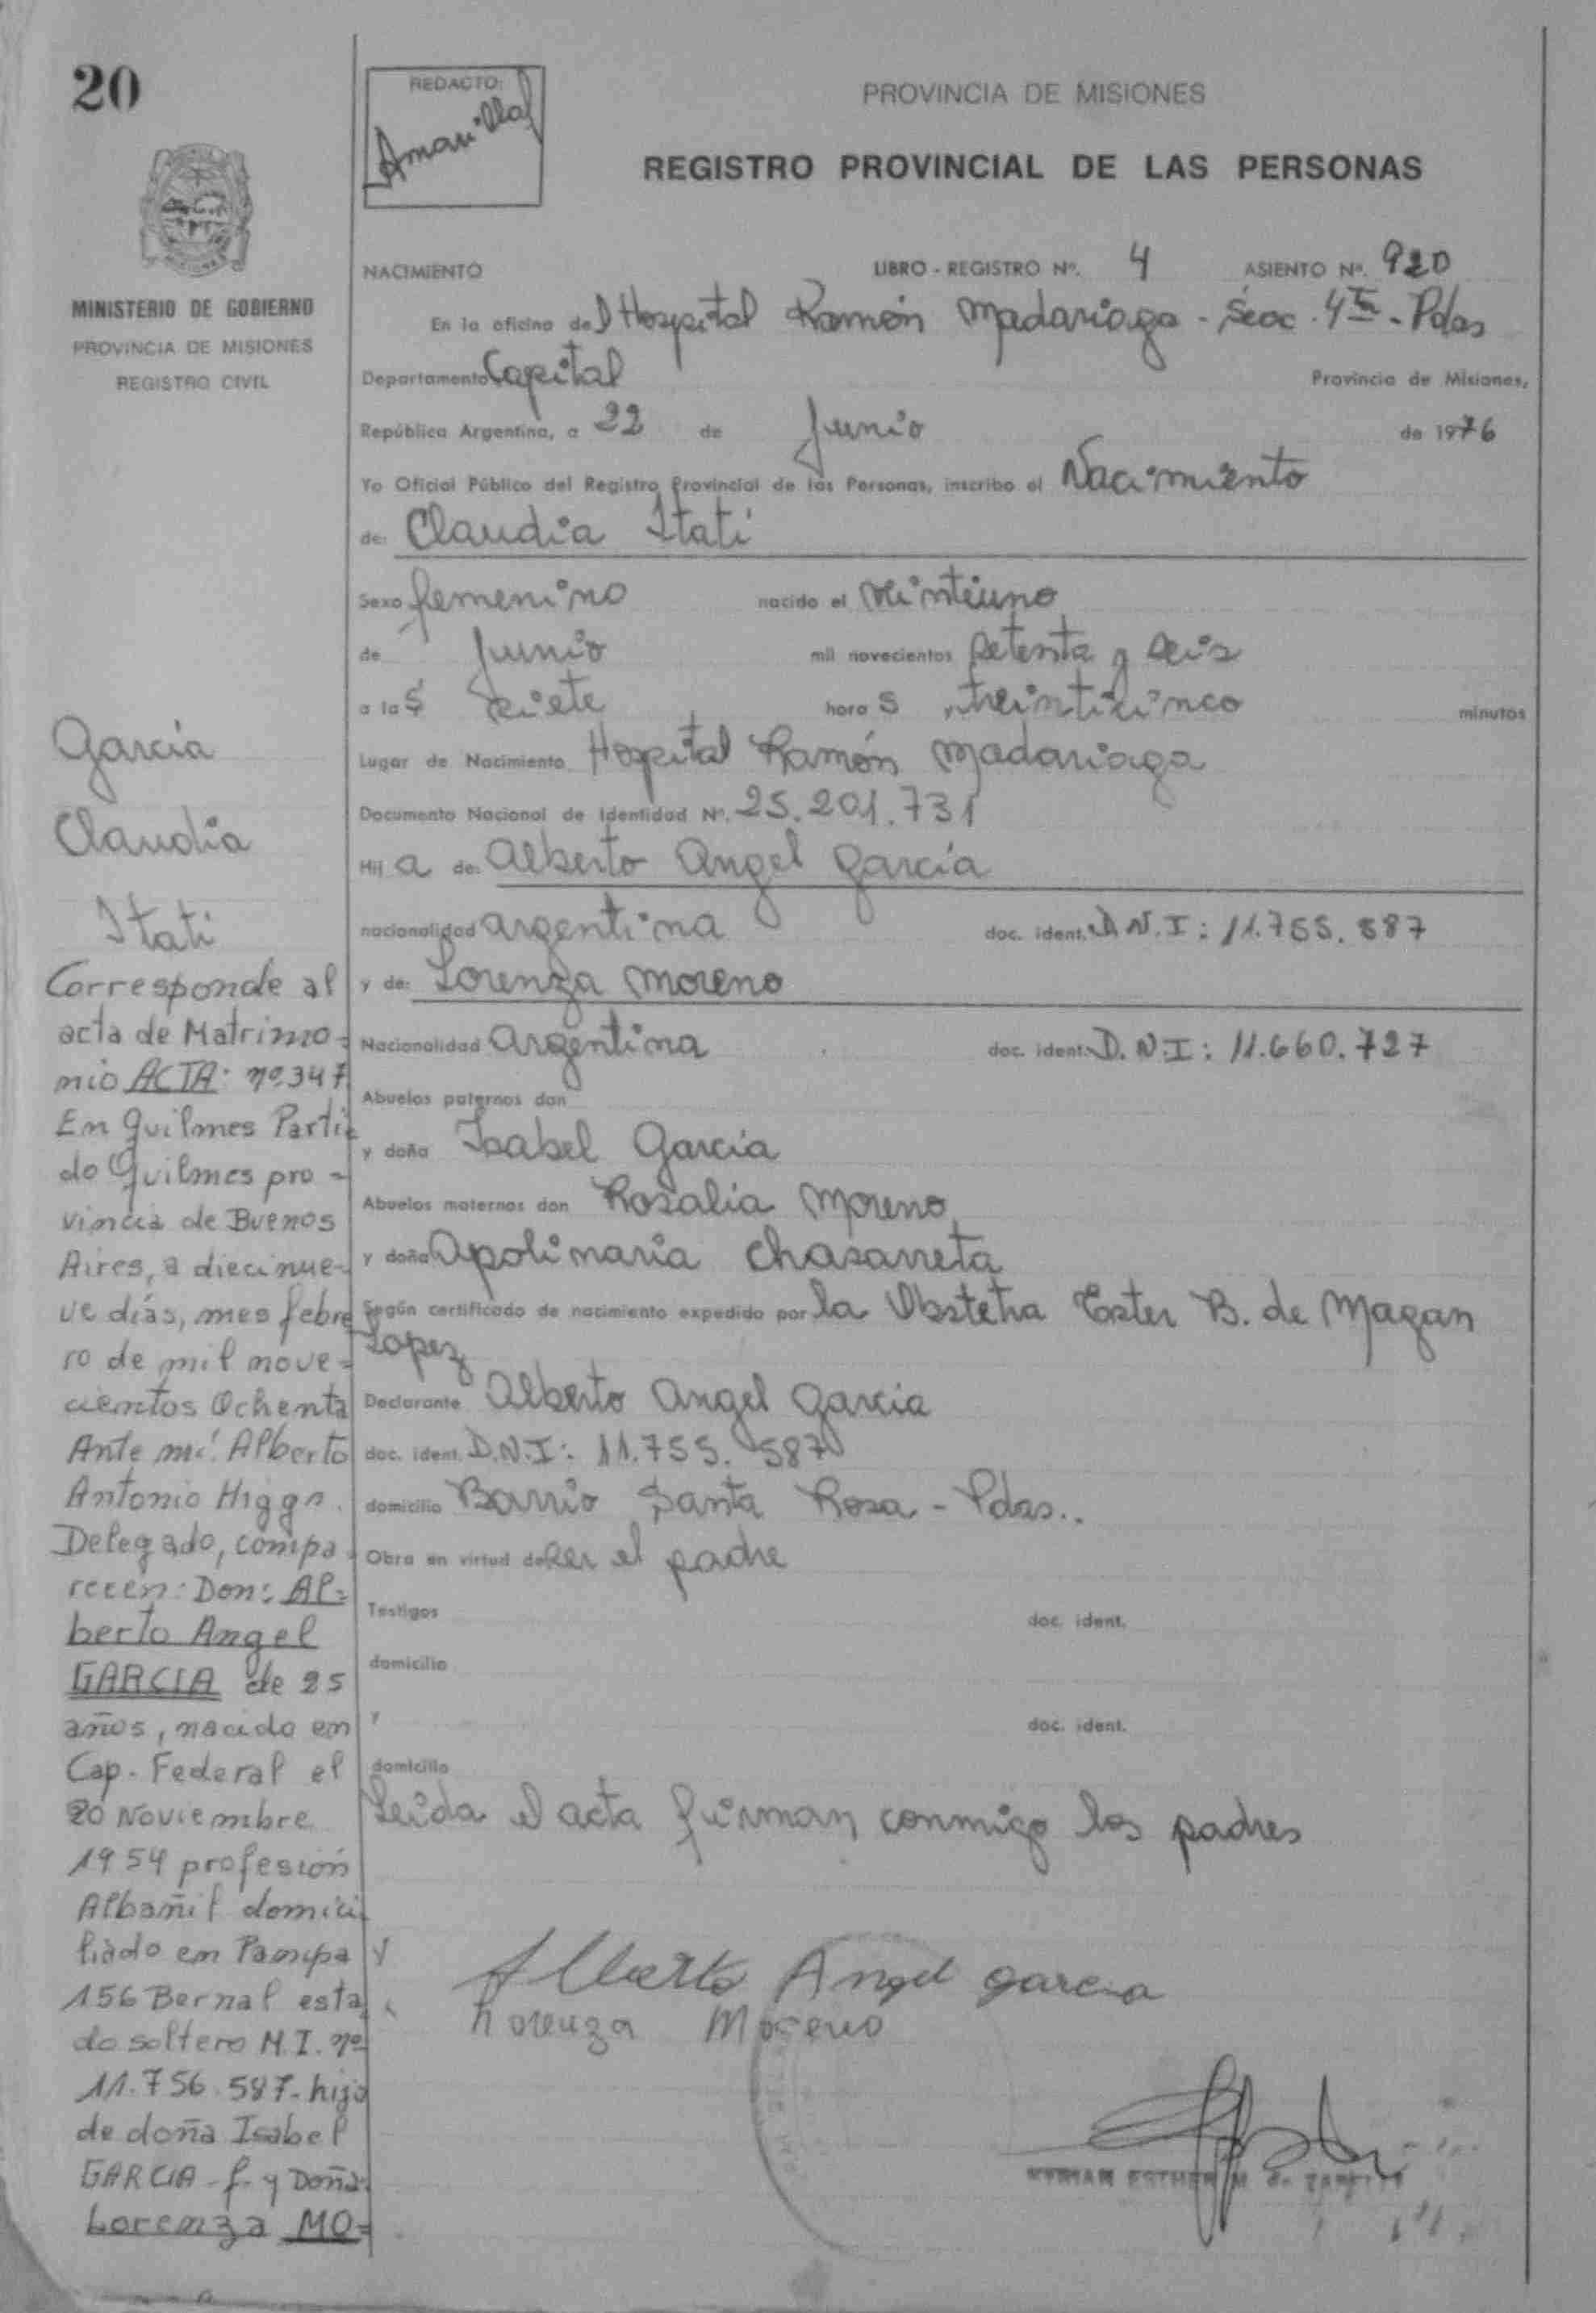 20
REDACTO:
Amarilla
PROVINCIA DE MISIONES
REGISTRO PROVINCIAL DE LAS PERSONAS
MINISTERIO DE GOBIERNO
PROVINCIA DE MISIONES
REGISTRO CIVIL
NACIMIENTO LIBRO - REGISTRO Nº. 4 ASIENTO Nº. 920
En la oficina del Hospital Ramón Madariaga - Secc. 4ta - Pdas
Departamento Capital Provincia de Misiones,
República Argentina, a 22 de Junio de 1976
Yo Oficial Público del Registro Provincial de las Personas, inscribo el Nacimiento
de: Claudia Itati
Sexo femenino nacido el veintiuno
de Junio mil novecientos setenta y seis
a las siete horas treinticinco minutos
Lugar de Nacimiento Hospital Ramón Madariaga
Documento Nacional de Identidad Nº. 25.201.731
Hij a de: Alberto Angel García
nacionalidad argentina doc. ident. D.N.I: 11.755.587
y de: Lorenza Moreno
Nacionalidad Argentina doc. ident. D.N.I: 11.660.727
Abuelos paternos don
y doña Isabel García
Abuelos maternos don Rosalía Moreno
y doña Apolinaria Chasarreta
Según certificado de nacimiento expedido por la Obstetra Ester B. de Magan
Lopez
Declarante Alberto Angel García
doc. ident. D.N.I: 11.755.587
domicilio Barrio Santa Rosa - Pdas..
Obra en virtud de ser el padre
Testigos doc. ident.
domicilio
y doc. ident.
domicilio
Leida el acta firman conmigo los padres
Alberto Angel garcia
Lorenza Moreno
MYRIAM ESTHER M. de
García
Claudia
Itati
Corresponde al
acta de Matrimo=
nio ACTA: nº 347
En Quilmes Parti=
do Quilmes pro=
vincia de Buenos
Aires, a diecinue=
ve días, mes febre
ro de mil nove=
cientos Ochenta
Ante mí: Alberto
Antonio Higgs.
Delegado, compa=
recen: Don: Al=
berto Angel
GARCIA de 25
años, nacido en
Cap. Federal el
20 Noviembre
1954 profesión
Albañil domici
liado en Pampa y
156 Bernal esta
do soltero M.I. nº
11.756.587- hijo
de doña Isabel
GARCIA - f. y Doña:
Lorenza MO=